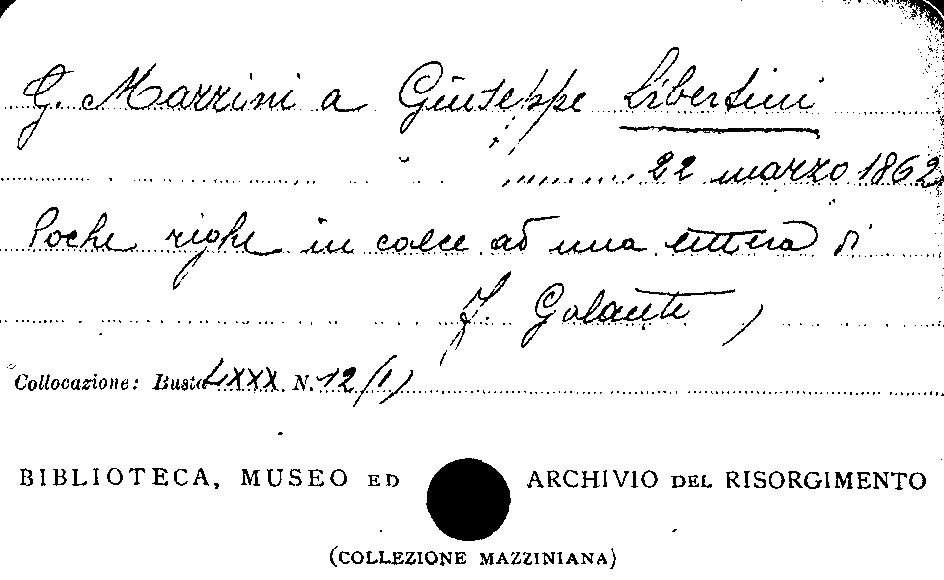 G. Mazzini a Giuseppe Libertini
22 marzo 1862
Poche righe in calce ad una lettera di
F. Galante
Collocazione: Busta LXXX N. 12 (1)
BIBLIOTECA, MUSEO ED ARCHIVIO DEL RISORGIMENTO
(COLLEZIONE MAZZINIANA)